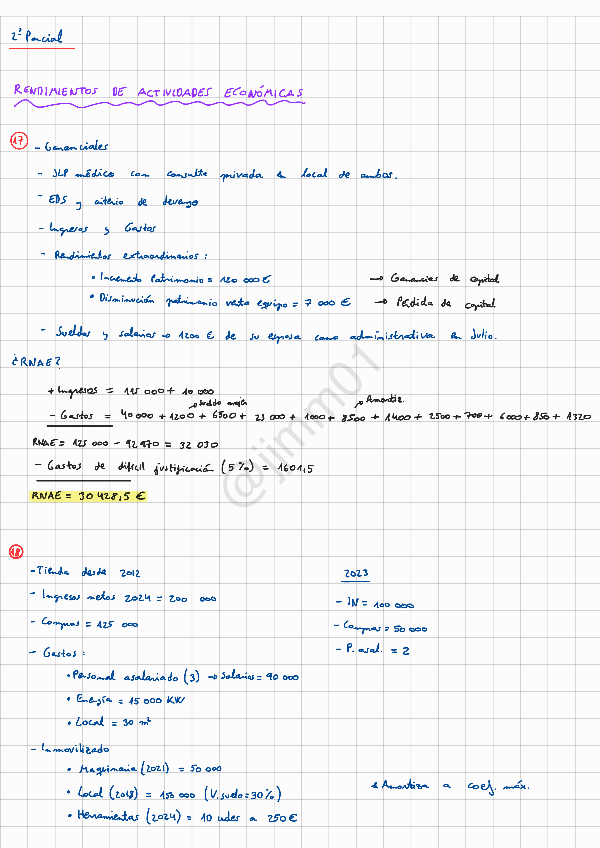 2º Parcial
RENDIMIENTOS DE ACTIVIDADES ECONÓMICAS
17
- Gananciales
- JLP médico con consulta privada en local de ambos.
- EDS y criterio de devengo
- Ingresos y Gastos
- Rendimientos extraordinarios:
• Incremento Patrimonio = 120 000 € → Ganancias de capital
• Disminución patrimonio venta equipo = 7 000 € → Pérdida de capital
- Sueldos y salarios → 1200 € de su esposa como administrativa en Julio.
¿RNAE?
+ Ingresos = 115 000 + 10 000
Sueldo mujer Amortiz.
- Gastos = 40 000 + 1200 + 6500 + 23 000 + 1000 + 8500 + 1400 + 2500 + 700 + 6000 + 850 + 1320
RNAE = 125 000 - 92 970 = 32 030
- Gastos de difícil justificación (5%) = 1601,5
RNAE = 30 428,5 €
@jimm01
18
- Tienda desde 2012 2023
- Ingresos netos 2024 = 200 000 - IN = 100 000
- Compras = 125 000 - Compras = 50 000
- Gastos: - P. asal. = 2
• Personal asalariado (3) → Salarios = 90 000
• Energía = 15 000 KW
• Local = 30 m²
- Inmovilizado
• Maquinaria (2021) = 50 000 * Amortiza a coef. máx.
• Local (2018) = 150 000 (V. suelo = 30%)
• Herramientas (2024) = 10 uder a 250 €